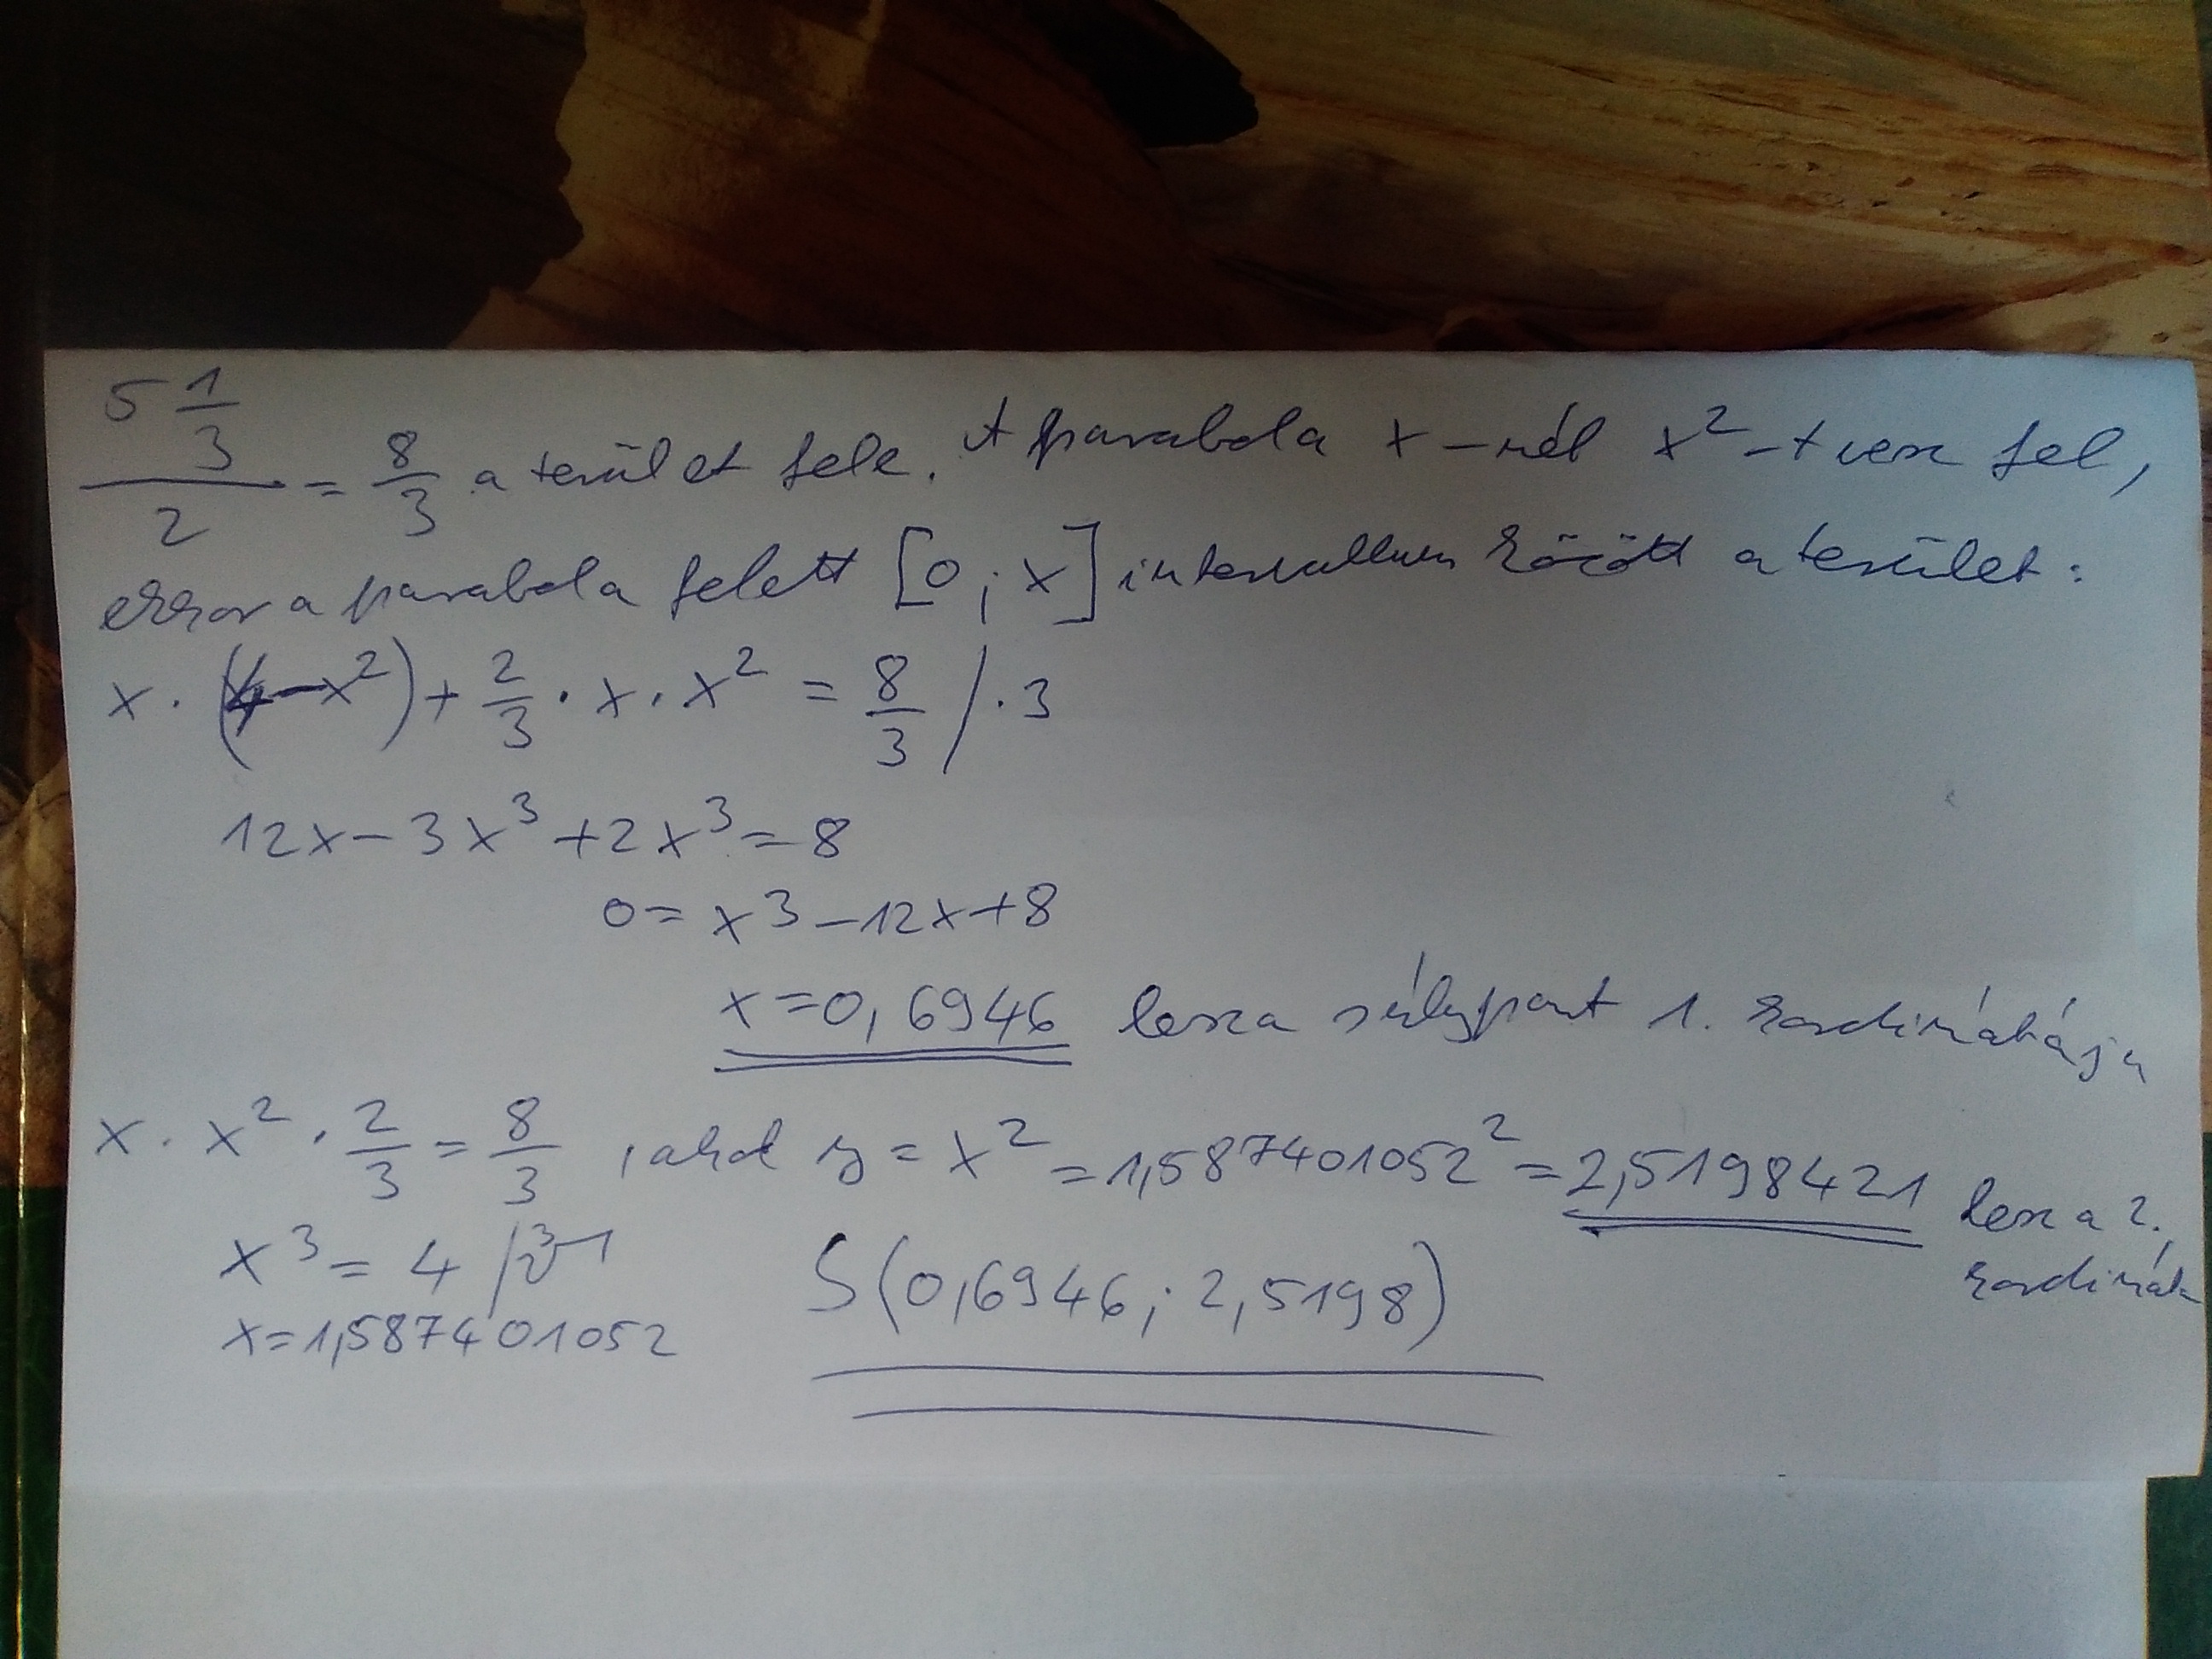 5 1/3 / 2 = 8/3 a terület fele. A parabola x-nél x²-t vesz fel,
ekkor a parabola felett [0; x] intervallum között a terület:
x · (4-x²) + 2/3 · x · x² = 8/3 / · 3
12x - 3x³ + 2x³ = 8
0 = x³ - 12x + 8
x = 0,6946 lesz a súlypont 1. koordinátája
x · x² · 2/3 = 8/3 , ahol y = x² = 1,587401052² = 2,5198421 lesz a 2.
koordináta
x³ = 4 / ³√
x = 1,587401052
S(0,6946; 2,5198)